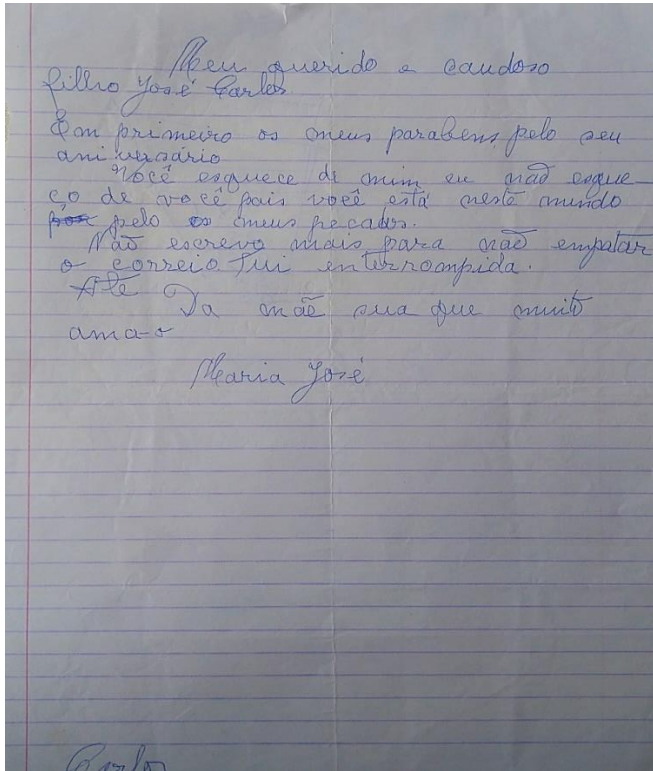 Meu querido e caudoso
filho José Carlos.
Em primeiro os meus parabens pelo seu
aniversário
Você esquece de mim eu não esque-
ço de você pois você está neste mundo
pelo os meus pecados.
Não escrevo mais para não empatar
o correio fui interrompida.
Até
Da mãe sua que muito
ama-o
Maria José
Carlos